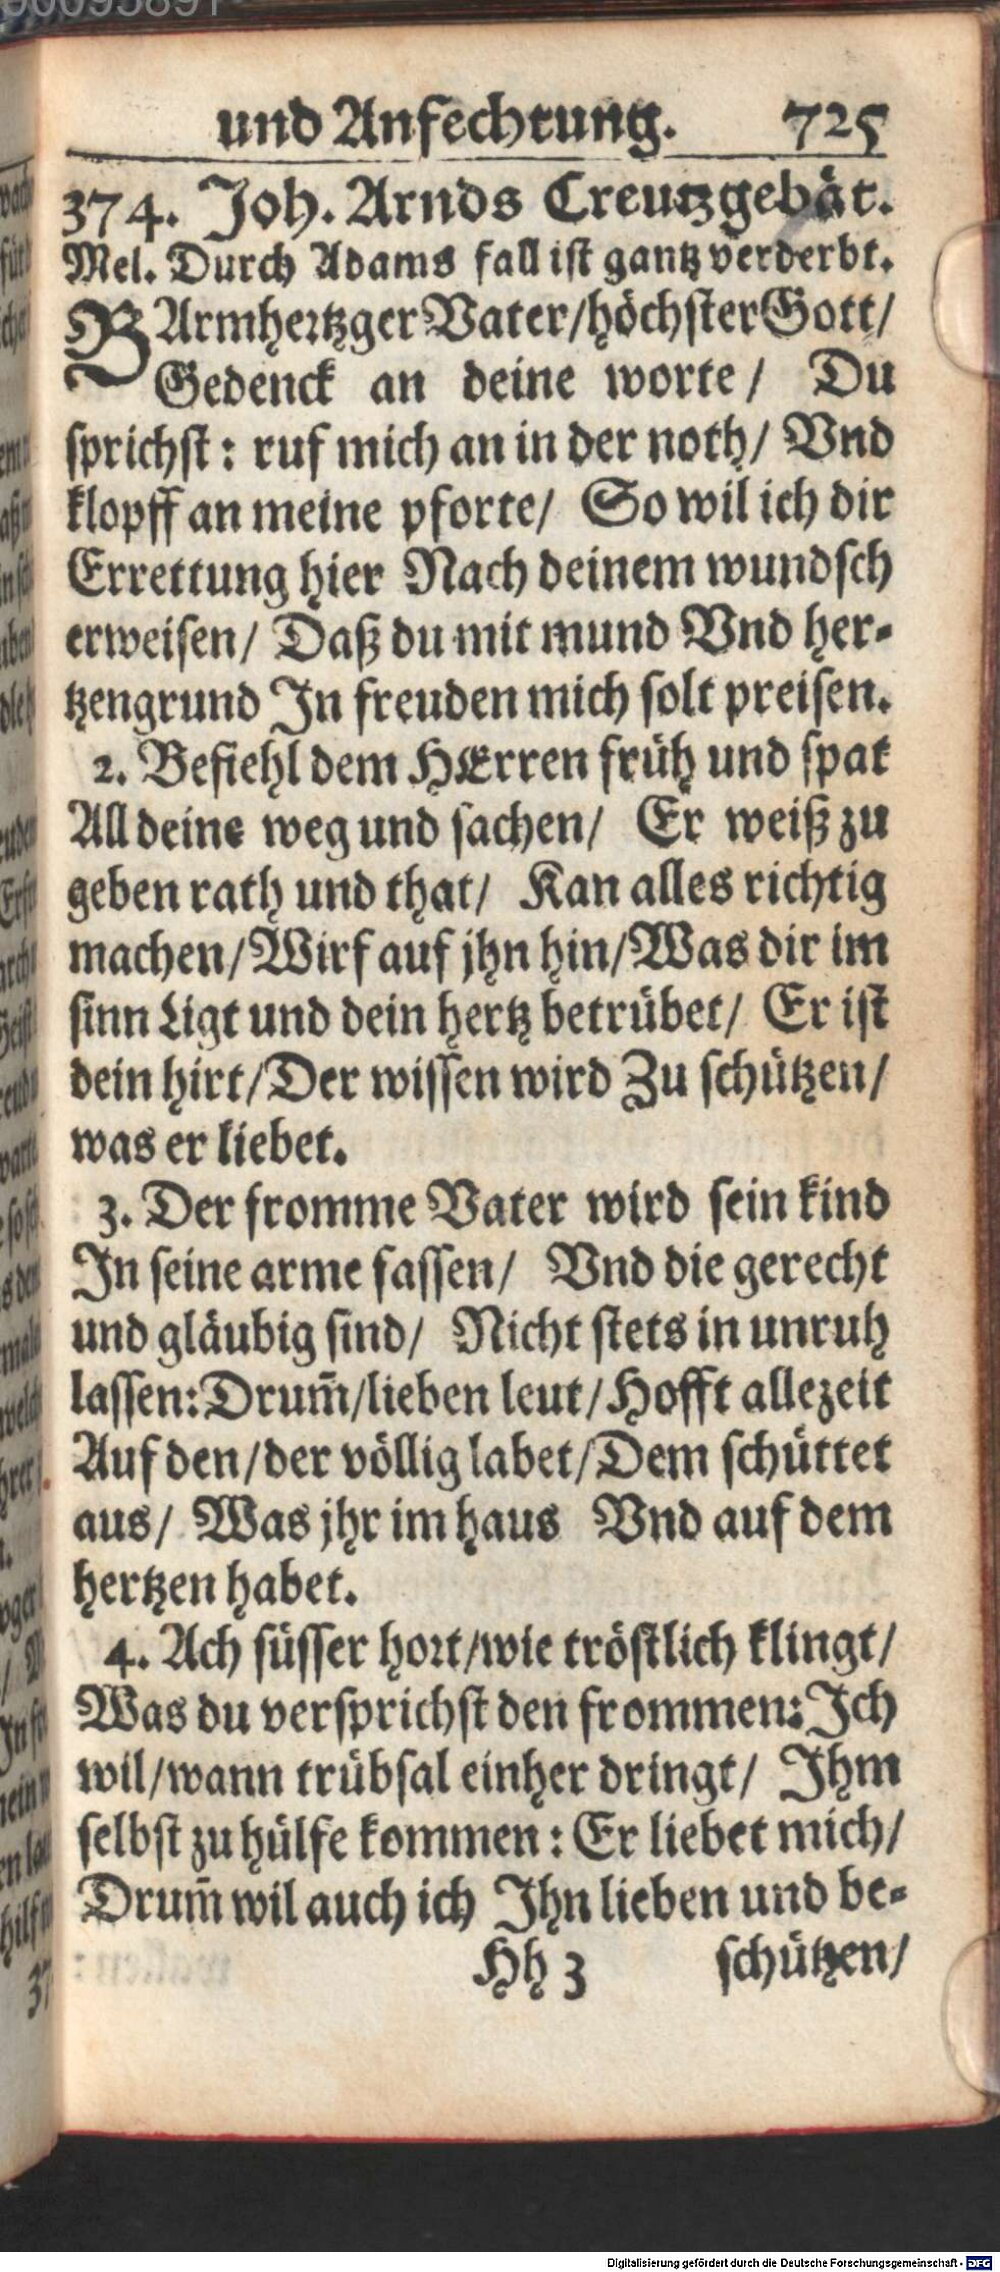 und Anfechtung. 725
374. Joh. Arnds Creutzgebät.
Mel. Durch Adams fall ist gantz verderbt.
BArmhertzger Vater/höchster Gott/
Gedenck an deine worte/ Du
sprichst: ruf mich an in der noth/ Vnd
klopff an meine pforte/ So wil ich dir
Errettung hier Nach deinem wundsch
erweisen/ Daß du mit mund Vnd her-
tzengrund In freuden mich solt preisen.
2. Befiehl dem HErren früh und spat
All deine weg und sachen/ Er weiß zu
geben rath und that/ Kan alles richtig
machen/Wirf auf jhn hin/Was dir im
sinn Ligt und dein hertz betrübet/ Er ist
dein hirt/Der wissen wird Zu schützen/
was er liebet.
3. Der fromme Vater wird sein kind
In seine arme fassen/ Vnd die gerecht
und gläubig sind/ Nicht stets in unruh
lassen: Drum̃/lieben leut/Hofft allezeit
Auf den/der völlig labet/Dem schüttet
aus/ Was jhr im haus Vnd auf dem
hertzen habet.
4. Ach süsser hort/wie tröstlich klingt/
Was du versprichst den frommen: Ich
wil/wann trübsal einher dringt/ Ihm
selbst zu hülfe kommen: Er liebet mich/
Drum̃ wil auch ich Ihn lieben und be-
Hh 3 schützen/
Digitalisierung gefördert durch die Deutsche Forschungsgemeinschaft - DFG